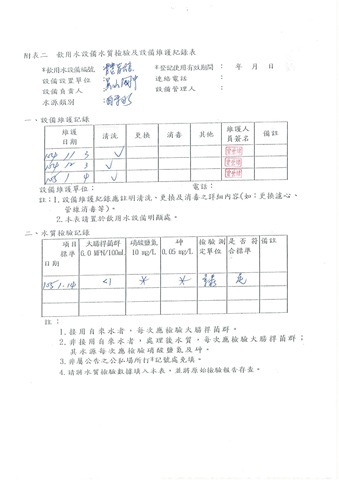 附表二 飲用水設備水質檢驗及設備維護紀錄表
*飲用水設備編號： *登記使用有效期間： 年 月 日
設備設置單位： 國中 連絡電話：
設備負責人： 設備管理人：
水源類別： 自來水
一、設備維護記錄
維護日期 清洗 更換 消毒 其他 維護人員簽名 備註
104 11 3 ✓
104 12 3 ✓
105 1 4 ✓
設備維護單位： 電話：
註：1.設備維護紀錄應註明清洗、更換及消毒之詳細內容(如：更換濾心、
管線消毒等)。
2.本表請置於飲用水設備明顯處。
二、水質檢驗記錄
項目 標準 日期 大腸桿菌群 6.0 MPN/100ml 硝酸鹽氮 10 mg/L 砷 0.05 mg/L 檢驗測定單位 是否符合標準 備註
105.1.14 <1 * * 是
註：
1.接用自來水者，每次應檢驗大腸桿菌群。
2.非接用自來水者，處理後水質，每次應檢驗大腸桿菌群；
其水源每次應檢驗硝酸鹽氮及砷。
3.非屬公告之公私場所*記號處免填。
4.請將水質檢驗數據填入本表，並將原始檢驗報告存查。